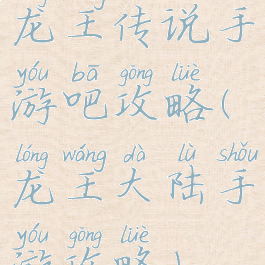 龙王传说手
yóu bā gōng lüè
游吧攻略(
lóng wáng dà lù shǒu
龙王大陆手
yóu gōng lüè
游攻略)